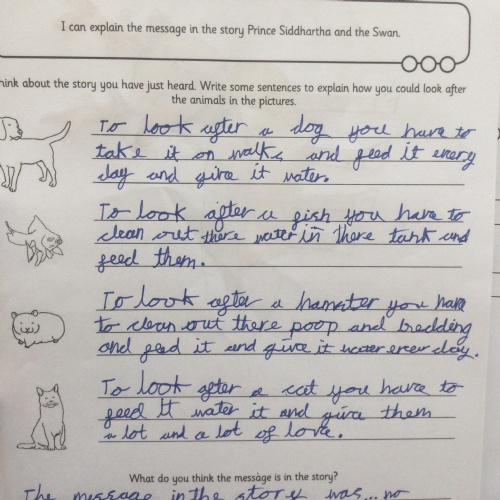 I can explain the message in the story Prince Siddhartha and the Swan.
hink about the story you have just heard. Write some sentences to explain how you could look after
the animals in the pictures.
To look after a dog you have to
take it on walks and feed it every
day and give it water.
To look after a fish you have to
clean out there water in there tank and
feed them.
To look after a hamster you have
to clean out there poop and bredding
and feed it and give it water every day.
To look after a cat you have to
feed it water it and give them
a lot and a lot of love.
What do you think the message is in the story?
The message in the story was... no